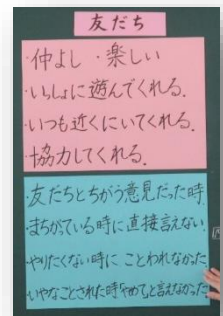 友だち
・仲よし ・楽しい
・いっしょに遊んでくれる.
・いつも近くにいてくれる.
・協力してくれる.
・友だちとちがう意見だった時
・まちがっている時に直接言えない.
・やりたくない時に ことわれなかった
・いやなことされた時「やめて」と言えなかった